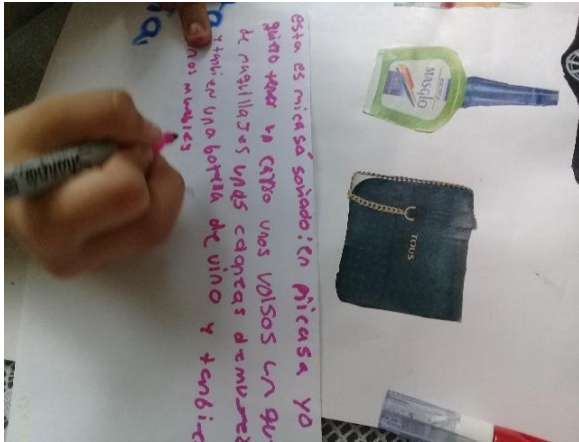 esta es micasa soñado:en miicasa yo
quiero tener un carro unos volsos un
de maquillajes unas
y tanbien una botella de vino y tenbie
unos muebles
MASGLO
TOUS